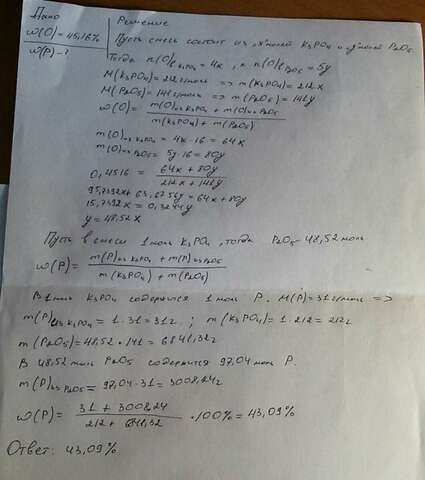 Дано
ω(O) = 45,16%
ω(P) - ?
Решение
Пусть смесь состоит из x молей K₃PO₄ и y молей P₂O₅.
Тогда n(O) в K₃PO₄ = 4x, а n(O) в P₂O₅ = 5y
M(K₃PO₄) = 212 г/моль => m(K₃PO₄) = 212x
M(P₂O₅) = 141 г/моль => m(P₂O₅) = 141y
ω(O) = m(O) из K₃PO₄ + m(O) из P₂O₅ / m(K₃PO₄) + m(P₂O₅)
m(O) из K₃PO₄ = 4x · 16 = 64x
m(O) из P₂O₅ = 5y · 16 = 80y
0,4516 = 64x + 80y / 212x + 141y
95,7392x + 63,6756y = 64x + 80y
15,7392x = 0,3244y
y = 48,52x
Пусть в смеси 1 моль K₃PO₄, тогда P₂O₅ - 48,52 моль
ω(P) = m(P) из K₃PO₄ + m(P) из P₂O₅ / m(K₃PO₄) + m(P₂O₅)
В 1 моль K₃PO₄ содержится 1 моль P. M(P) = 31 г/моль =>
m(P) из K₃PO₄ = 1 · 31 = 31г.; m(K₃PO₄) = 1 · 212 = 212г
m(P₂O₅) = 48,52 · 141 = 6841,32г
В 48,52 моль P₂O₅ содержится 97,04 моль P.
m(P) из P₂O₅ = 97,04 · 31 = 3008,24г
ω(P) = 31 + 3008,24 / 212 + 6841,32 · 100% = 43,09%
Ответ: 43,09%